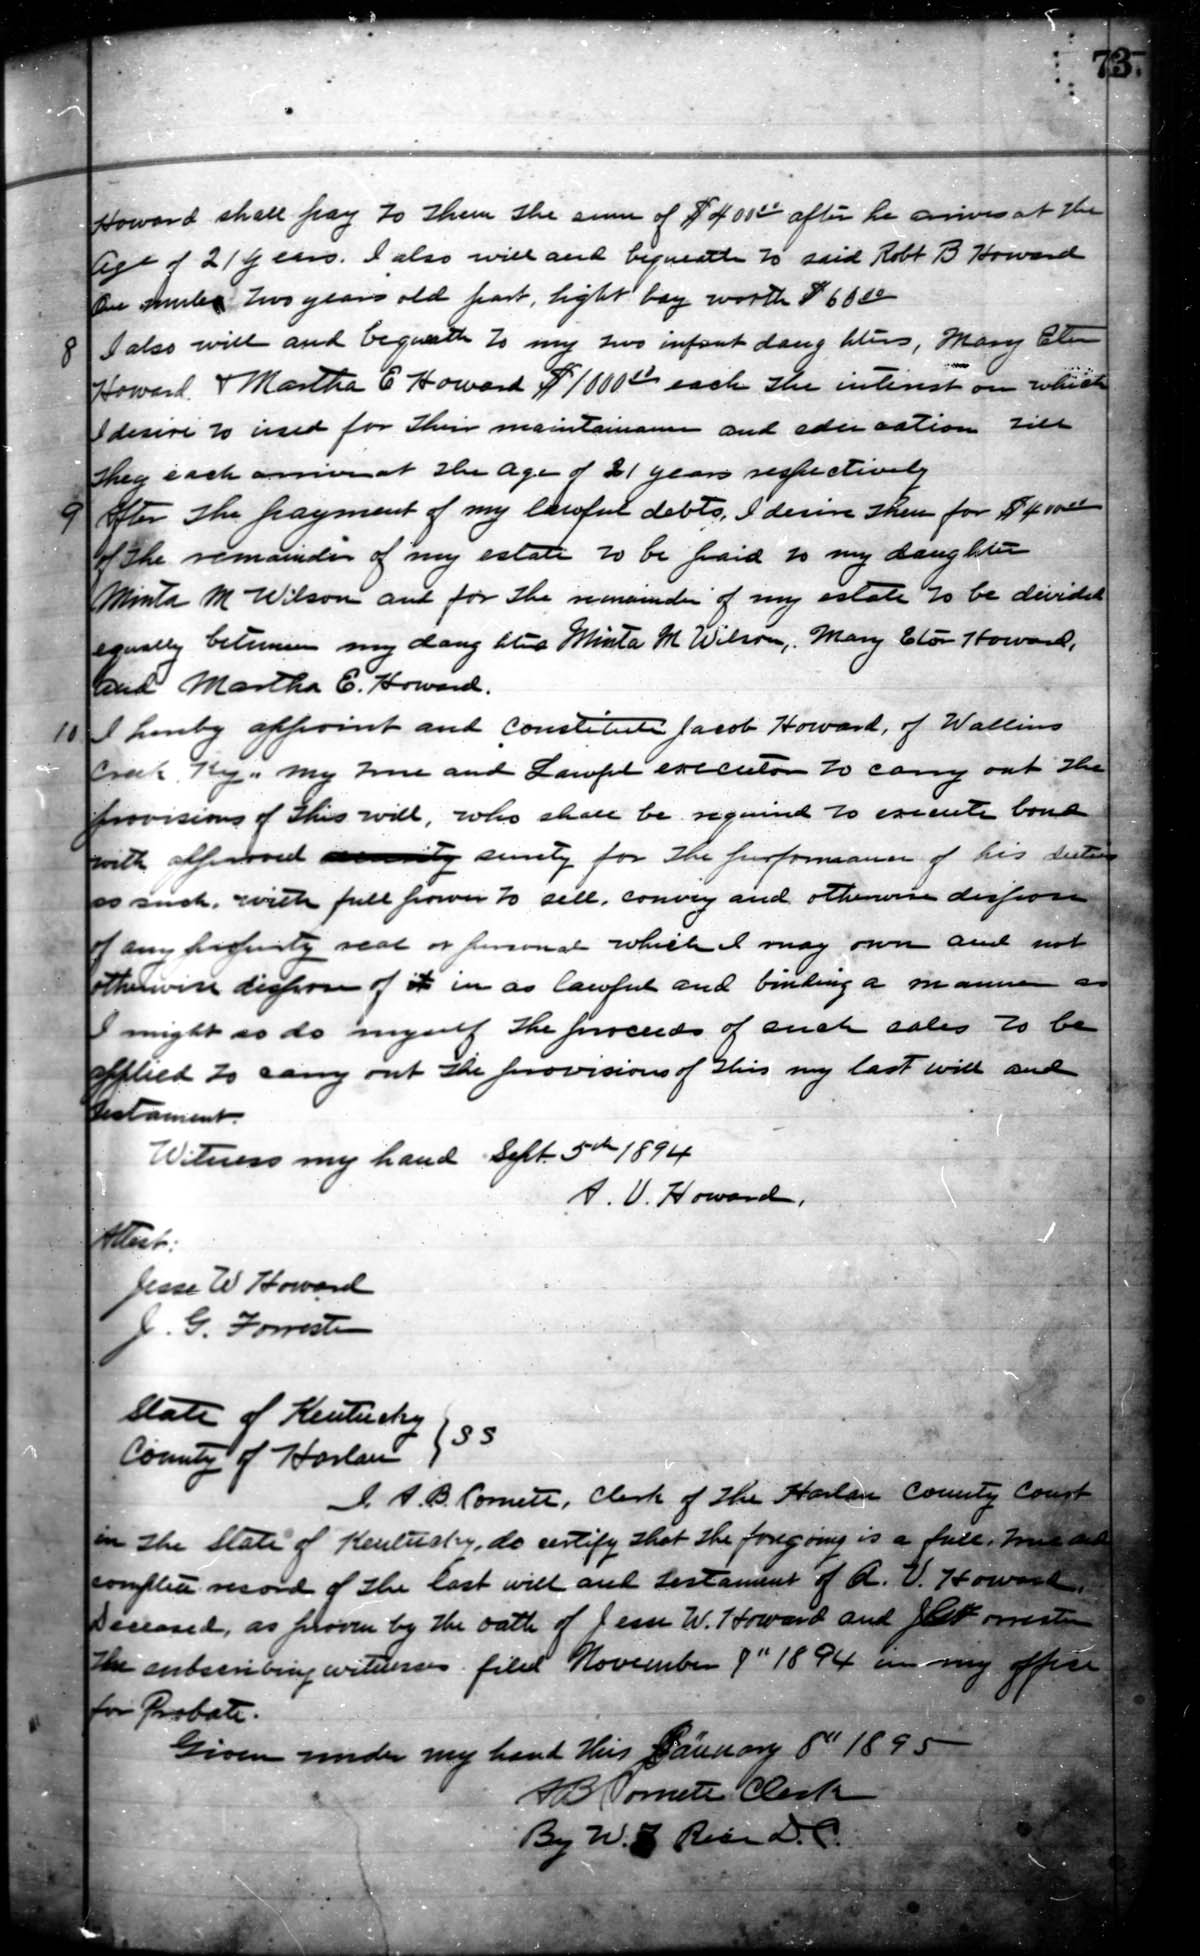 73
Howard shall pay to them the sum of $400.00 after he arrives at the
age of 21 years. I also will and bequeath to said Robt B Howard
One mule two years old past, light bay worth $60.00
8 I also will and bequeath to my two infant daughters, Mary Etor
Howard & Martha E Howard $1000.00 each the interest on which
I desire to used for their maintainance and education till
they each arrive at the age of 21 years respectively
9 After the payment of my lawful debts, I desire them for $400.00
of the remainder of my estate to be paid to my daughter
Minta M Wilson and for the remainder of my estate to be divided
equally between my daughters Minta M Wilson, Mary Etor Howard,
and Martha E. Howard.
10 I hereby appoint and constitute Jacob Howard, of Wallins
Creek Ky., my true and Lawful executor to carry out the
provisions of this will, who shall be required to execute bond
with approved security surety for the performance of his duties
as such, with full power to sell, convey and otherwise dispose
of any property real or personal which I may own and not
otherwise dispose of it in as lawful and binding a manner as
I might so do myself the proceeds of such sales to be
applied to carry out the provisions of this my last will and
testament.
Witness my hand Sept. 5th 1894
A. V. Howard.
Attest:
Jesse W Howard
J. G. Forrester
State of Kentucky
County of Harlan } SS
I, A. B. Cornett, Clerk of the Harlan County Court
in the State of Kentucky, do certify that the foregoing is a full, true and
complete record of the last will and testament of A. V. Howard,
Deceased, as proven by the oath of Jesse W. Howard and J G Forrester
the subscribing witnesses filed November 9" 1894 in my office
for Probate.
Given under my hand this January 8" 1895
A B Cornett Clerk
By W. Rice D.C.